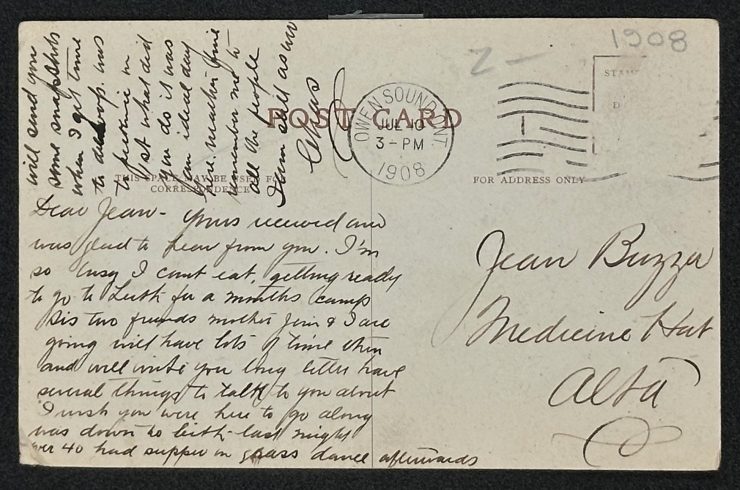 1908
POST CARD
OWEN SOUND, ONT
JUL 10
3 - PM
1908
STA
D
THIS SPACE MAY BE USED FOR
CORRESPONDENCE
FOR ADDRESS ONLY
Dear Jean - Yours received and
was glad to hear from you. I'm
so busy I cant eat, getting ready
to go to Leith for a months camp
Sis two friends mother Jim & I are
going will have lots of time then
and will write you long letter have
several things to talk to you about
I wish you were here to go along
was down to Leith last night
over 40 had supper on grass dance afterwards
will send you
some snapshots
when I get time
to develop was
to picnic on
1st what did
you do it was
an ideal day
here
remember me to
all the people
I am well as ever
Jean Buzza
Medicine Hat
Alta